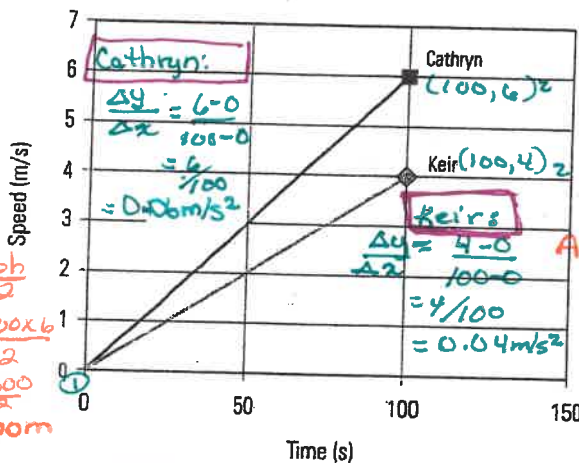 7
6
5
4
3
2
1
0
Speed (m/s)
Cathryn:
Δy/Δx = 6-0/100-0
= 6/100
= 0.06m/s²
Cathryn
(100, 6)₂
Keir (100, 4)₂
Keir:
Δy/Δx = 4-0/100-0
= 4/100
= 0.04m/s²
A
2
00x6
2
2
00m
①
0
50
100
150
Time (s)